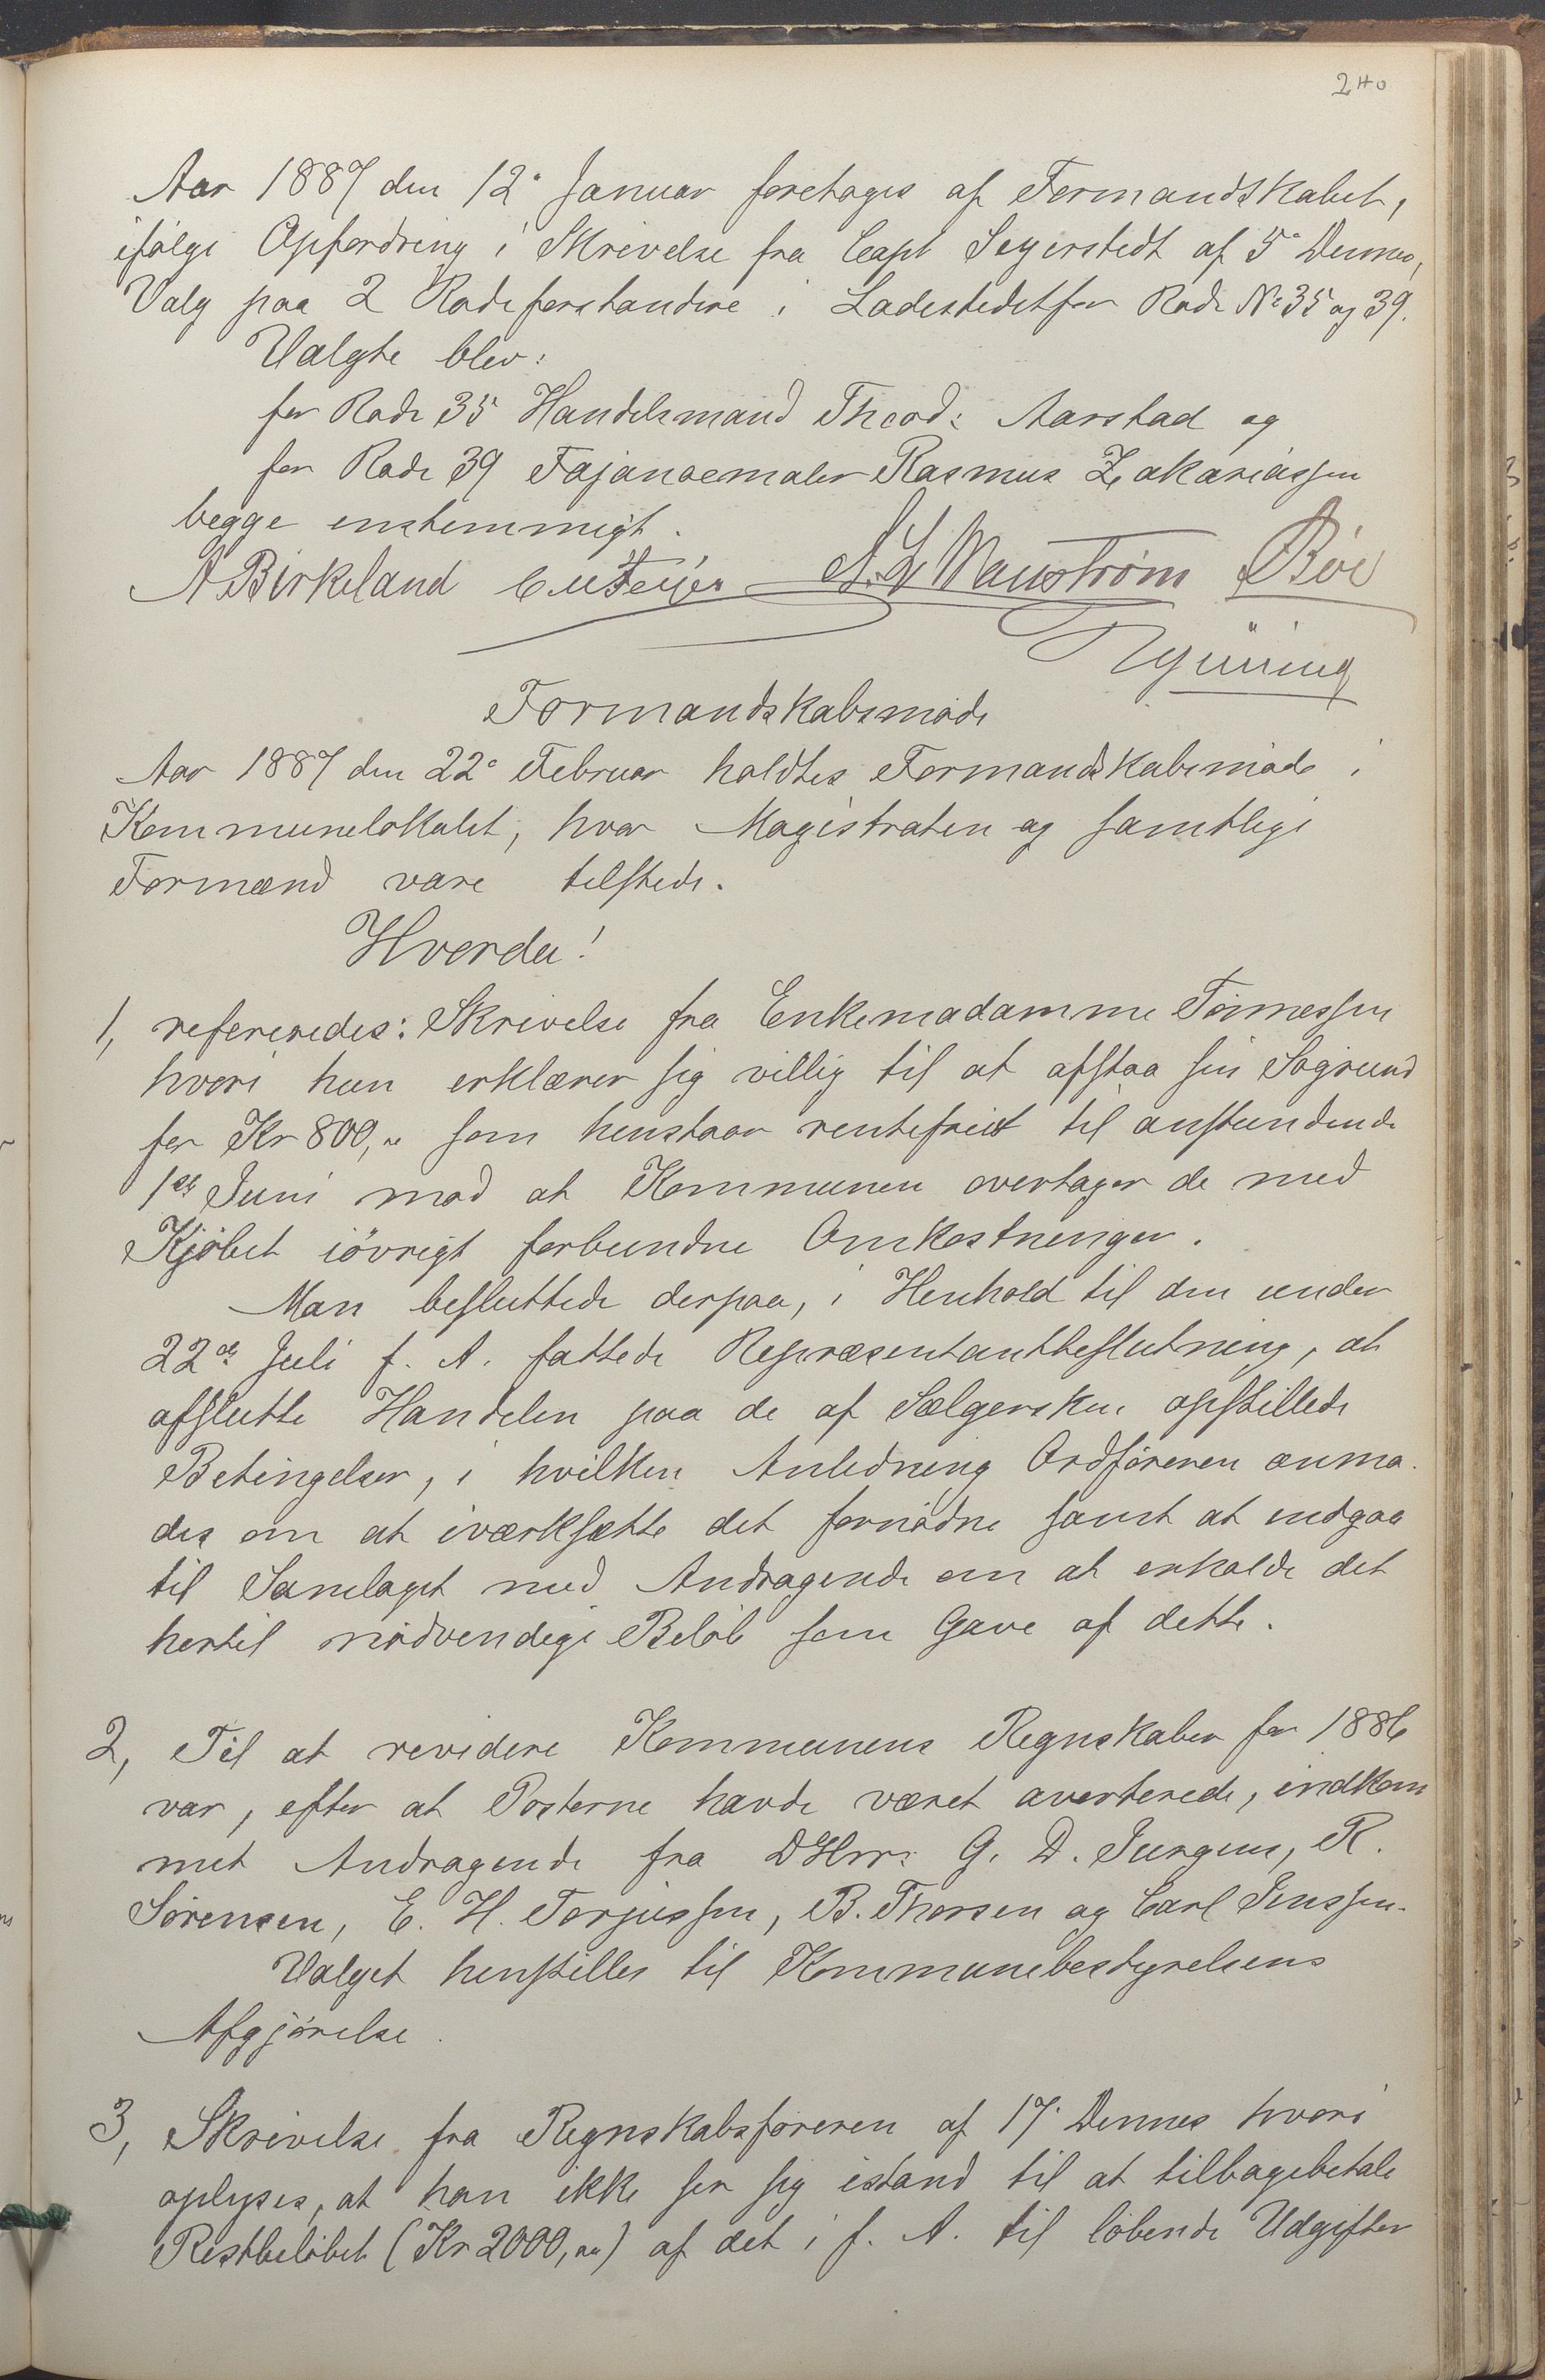 240
Aar 1887 den 12' Januar foretoges af Formandskabet,
ifølge Opfordring i Skrivelse fra Capt Segerstedt af 5' Dennes,
Valg paa 2 Rodeforstandere i Ladestedet for Rode No 35 og 39.
Valgte blev:
for Rode 35 Handelsmand Theod: Aarstad og
for Rode 39 Fajancemaler Rasmus Zakariassen
begge enstemmigt.
A Birkeland C M Feyer Bøe
Formandskabsmøde
Aar 1887 den 22' Februar holdtes Formandskabsmøde i
Kommunelokalet, hvor Magistraten og samtlige
Formænd vare tilstede.
Hverda!
1, refereredes: Skrivelse fra Enkemadamme Tønnessen
hvori hun erklærer sig villig til at afstaa sin Søgrund
for Kr 800,,, som henstaar rentefrit til anstundende
1ste Juni mod at Kommunen overtager de med
Kjøbet iøvrigt forbundne Omkostninger.
Man besluttede derpaa, i Henhold til den under
22de Juli f. A. fattede Repræsentantbeslutning, at
afslutte Handelen paa de af Sælgersken opstillede
Betingelser, i hvilken Anledning Ordføreren anmo-
des om at iværksætte det fornødne samt at indgaa
til Samlaget med Andragende om at erholde det
hertil nødvendige Beløb som Gave af dette.
2, Til at revidere Kommunens Regnskaber for 1886
var, efter at Posterne havde været averterede, indkom
met Andragende fra DHrr: G. D. Jurgens, R.
Sørensen, E. H. Torjussen, B. Thorsen og Carl Jenssen.
Valget henstilles til Kommunebestyrelsens
Afgjørelse.
3, Skrivelse fra Regnskabsføreren af 17' Dennes hvori
oplyses, at han ikke ser sig istand til at tilbagebetale
Restbeløbet (Kr 2000,,,) af det i f. A. til løbende Udgifter